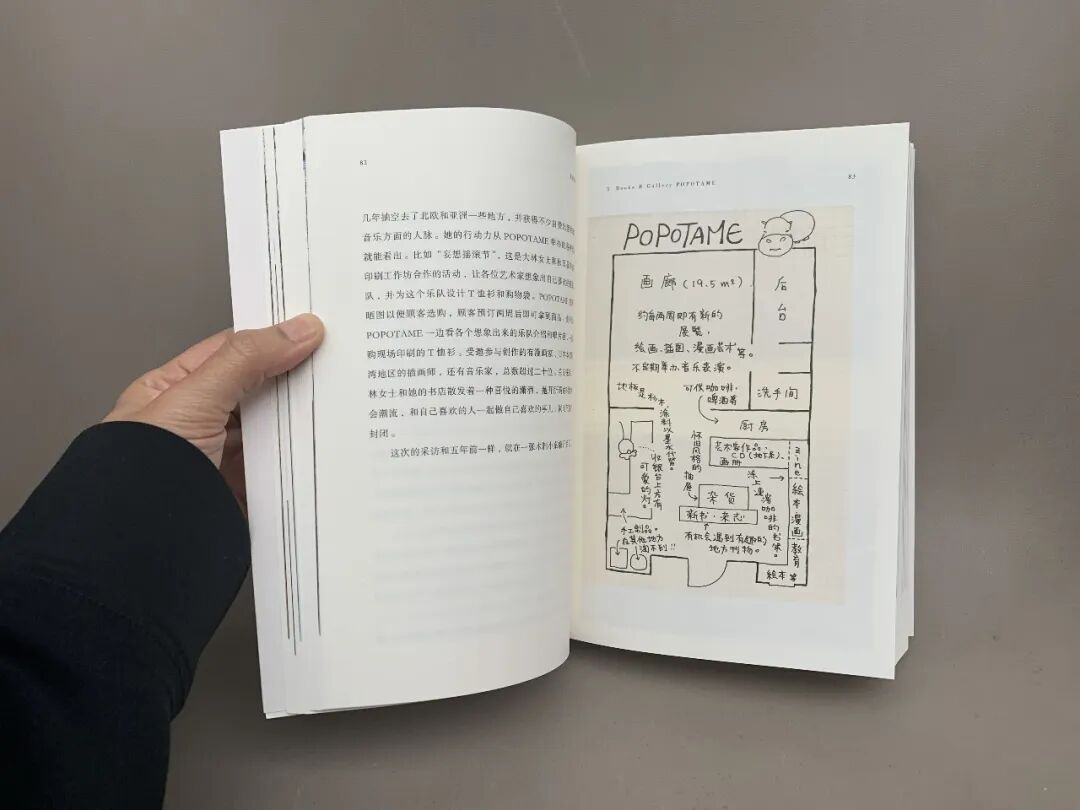 82
几年抽空去了北欧和亚洲一些地方，并获得不少
音乐方面的人脉。她的行动力从POPOTAME
就能看出。比如“妄想摇滚节”，这是大林女士
印刷工作坊合作的活动，让各位艺术家想象出自己
队，并为这个乐队设计T恤衫和购物袋。POPOTAME
晒图以便顾客选购，顾客预订两周后即可拿到商品
POPOTAME一边看各个想象出来的乐队介绍
购现场印刷的T恤衫。受邀参与创作的有漫画家、
湾地区的插画师，还有音乐家，总数超过二十位。
林女士和她的书店散发着一种喜悦的潇洒，
会潮流，和自己喜欢的人一起做自己喜欢的事儿，
封闭。
这次的采访和五年前一样，就在一张木制小
Books & Gallery POPOTAME
83
POPOTAME
画廊(19.5m²)
约每两周即有新的
展览，
绘画、蓝图、漫画艺术等。
不定期举办音乐表演。
后台
洗手间
地板是杉木，涂料以墨水代替。
可供咖啡、
啤酒等
厨房
收银台上方有可爱的灯。
怀旧风格的抽屉
艺术家作品、
CD(地下系)、
画册
涂上速溶咖啡的书架。
zine
绘本
漫画
教育
绘本等
杂货
新书·杂志
有机会遇到有趣的
地方刊物。
手工制品。
在其他地方
淘不到!!